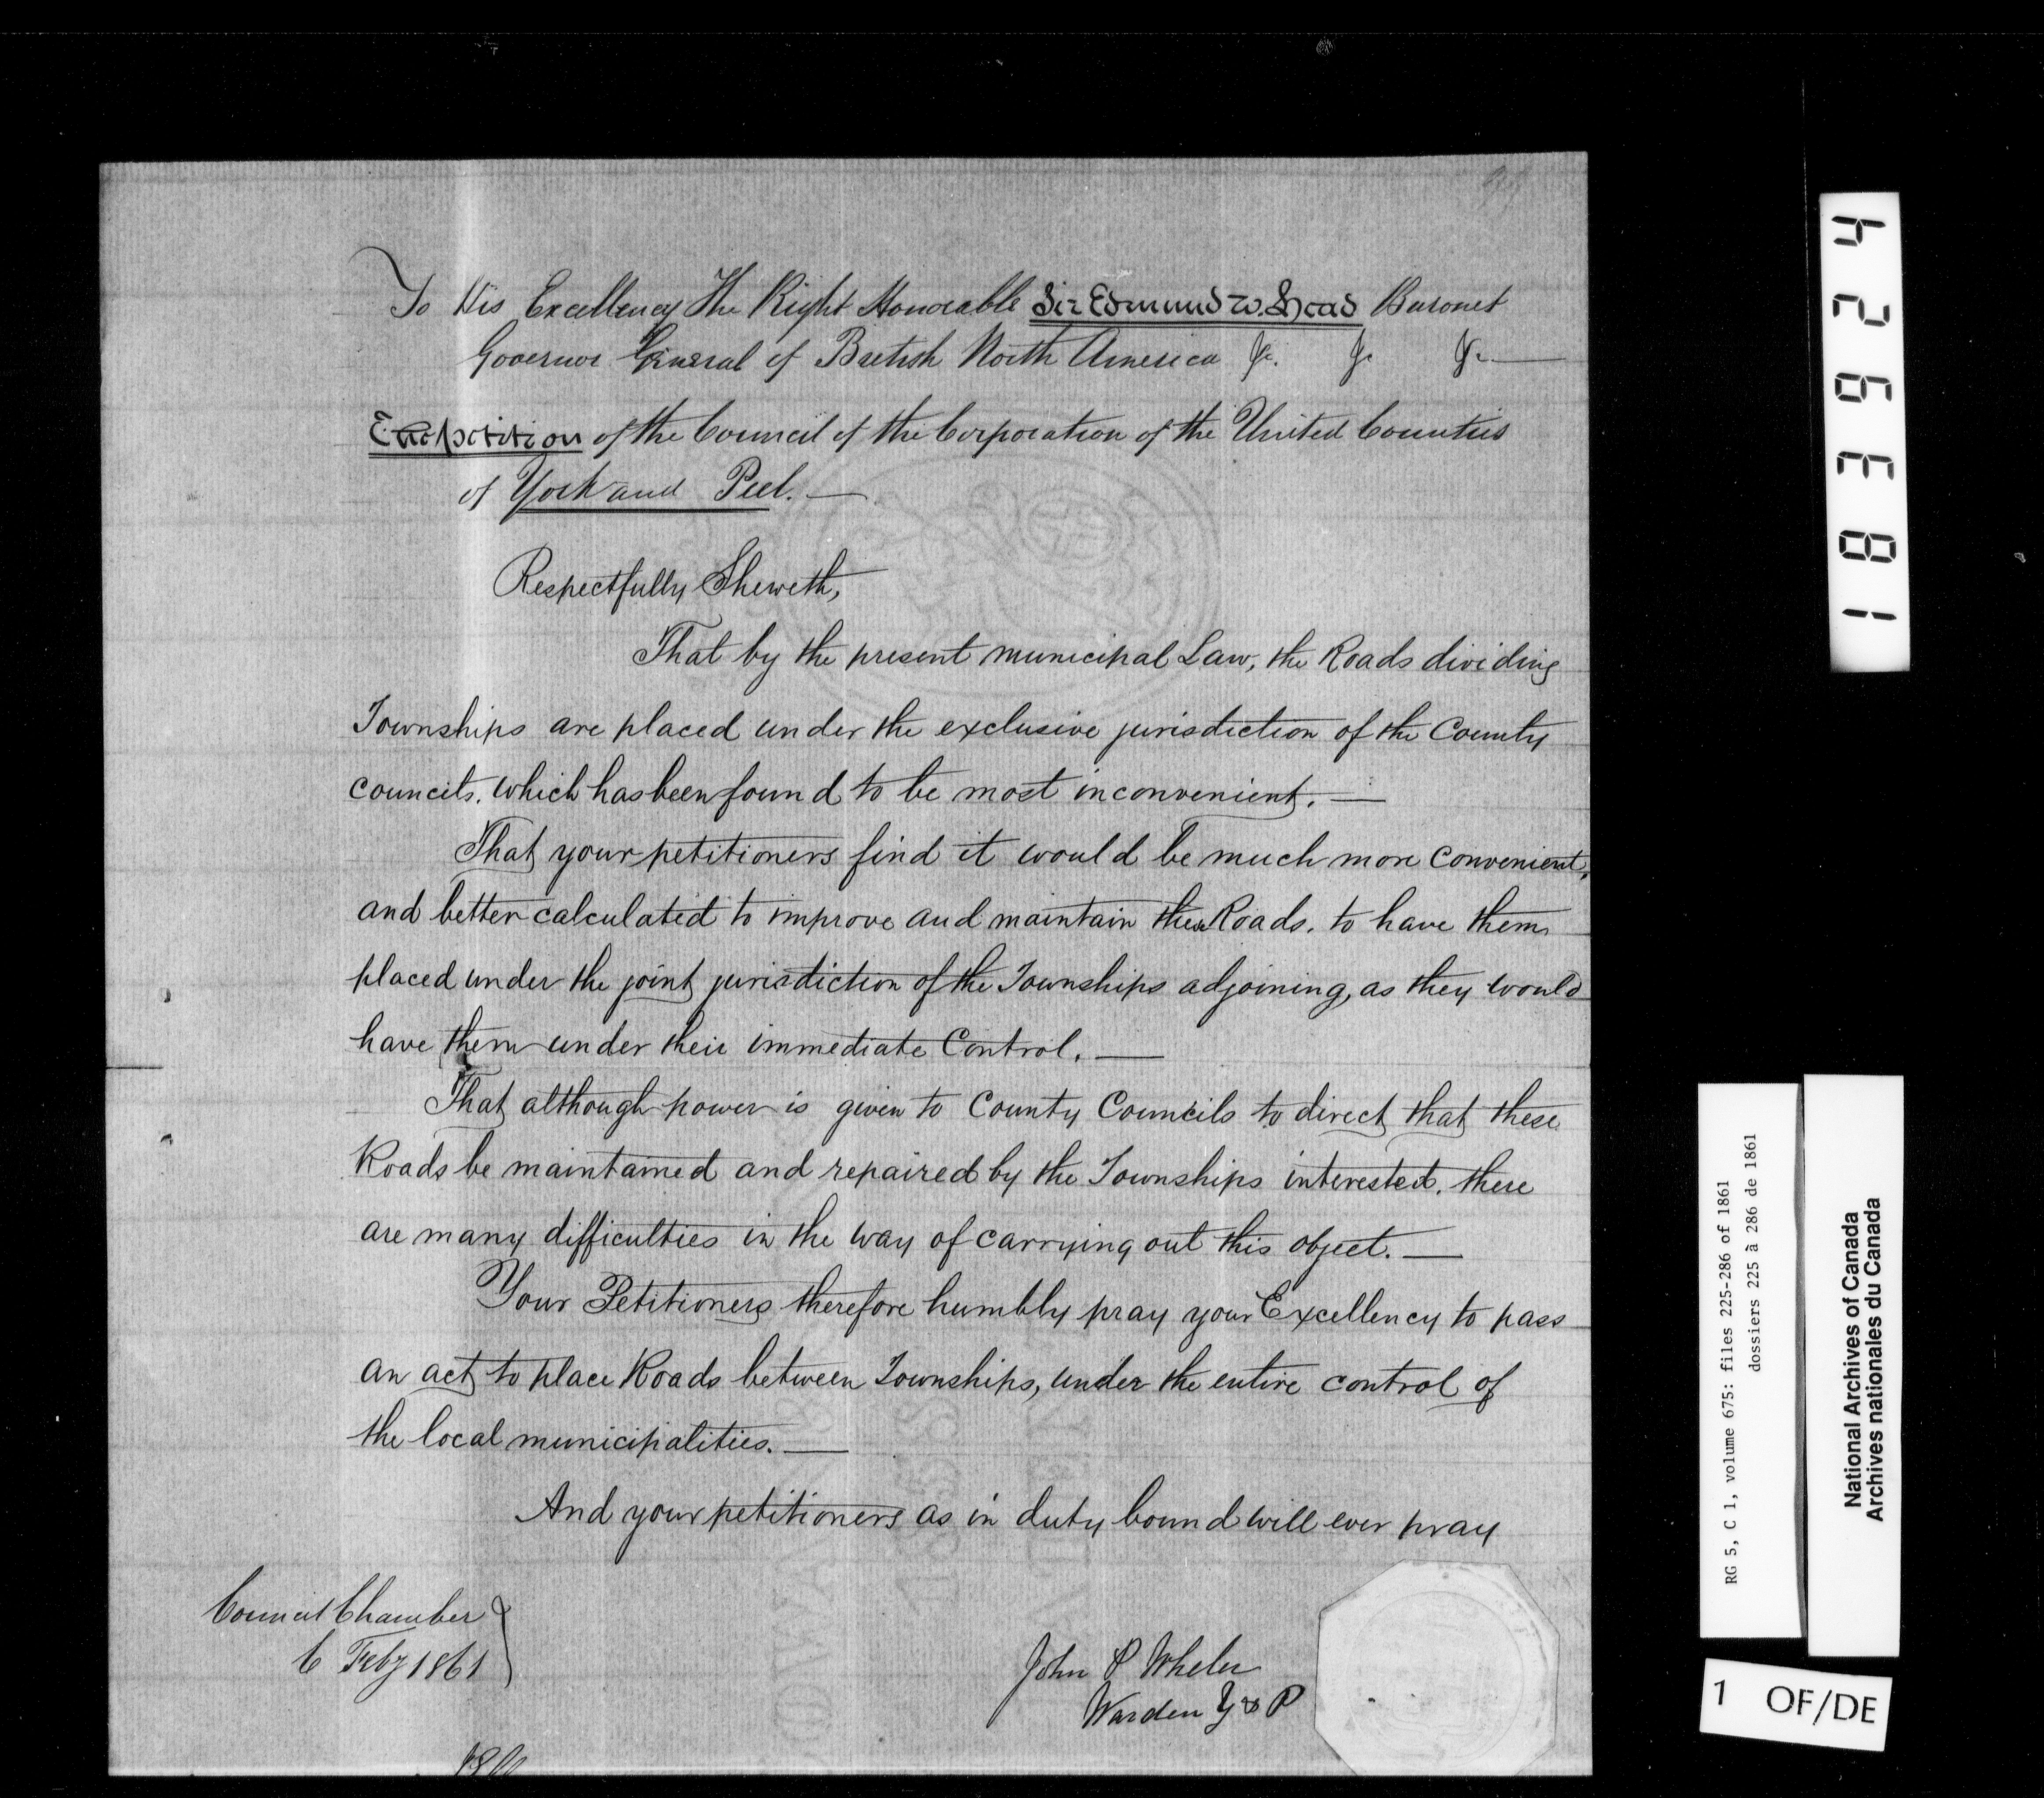 To His Excellency The Right Honorable Sir Edmund W. Head Baronet
Governor General of British North America &c. &c &c —
The petition of the Council of the Corporation of the United Counties
of York and Peel. —
Respectfully Sheweth,
That by the present municipal Law, the Roads dividing
Townships are placed under the exclusive jurisdiction of the County
councils. which has been found to be most inconvenient. —
That your petitioners find it would be much more convenient,
and better calculated to improve and maintain these Roads. to have them
placed under the joint jurisdiction of the Townships adjoining, as they would
have them under their immediate Control. —
That although power is given to County Councils to direct that these
Roads be maintained and repaired by the Townships interested. there
are many difficulties in the way of carrying out this object. —
Your Petitioners therefore humbly pray your Excellency to pass
an act to place Roads between Townships, under the entire control of
the local municipalities. —
And your petitioners as in duty bound will ever pray
Council Chamber
6 Feby 1861
John P Wheler
Warden Y & P
183924
RG 5, C 1, volume 675: files 225-286 of 1861
dossiers 225 à 286 de 1861
National Archives of Canada
Archives nationales du Canada
1 OF/DE